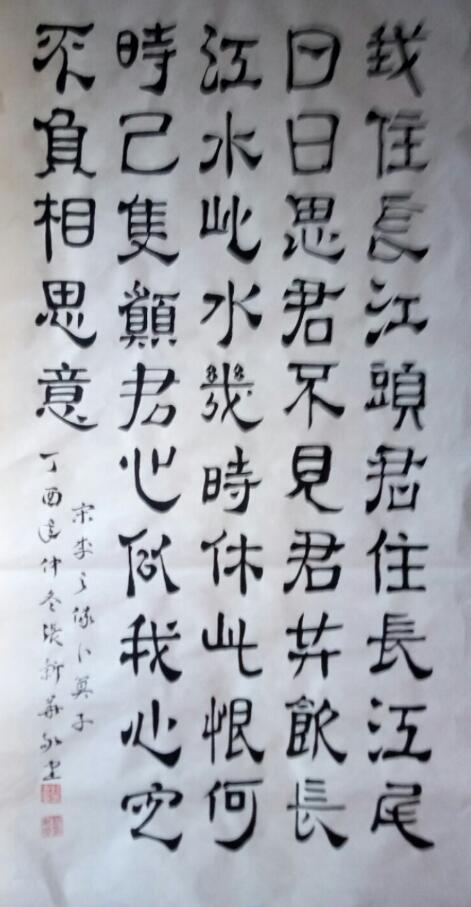 我住長江頭君住長江尾
日日思君不見君共飲長
江水此水幾時休此恨何
時已隻願君心似我心定
不負相思意
宋李之儀卜算子
丁酉歲仲冬張新華書